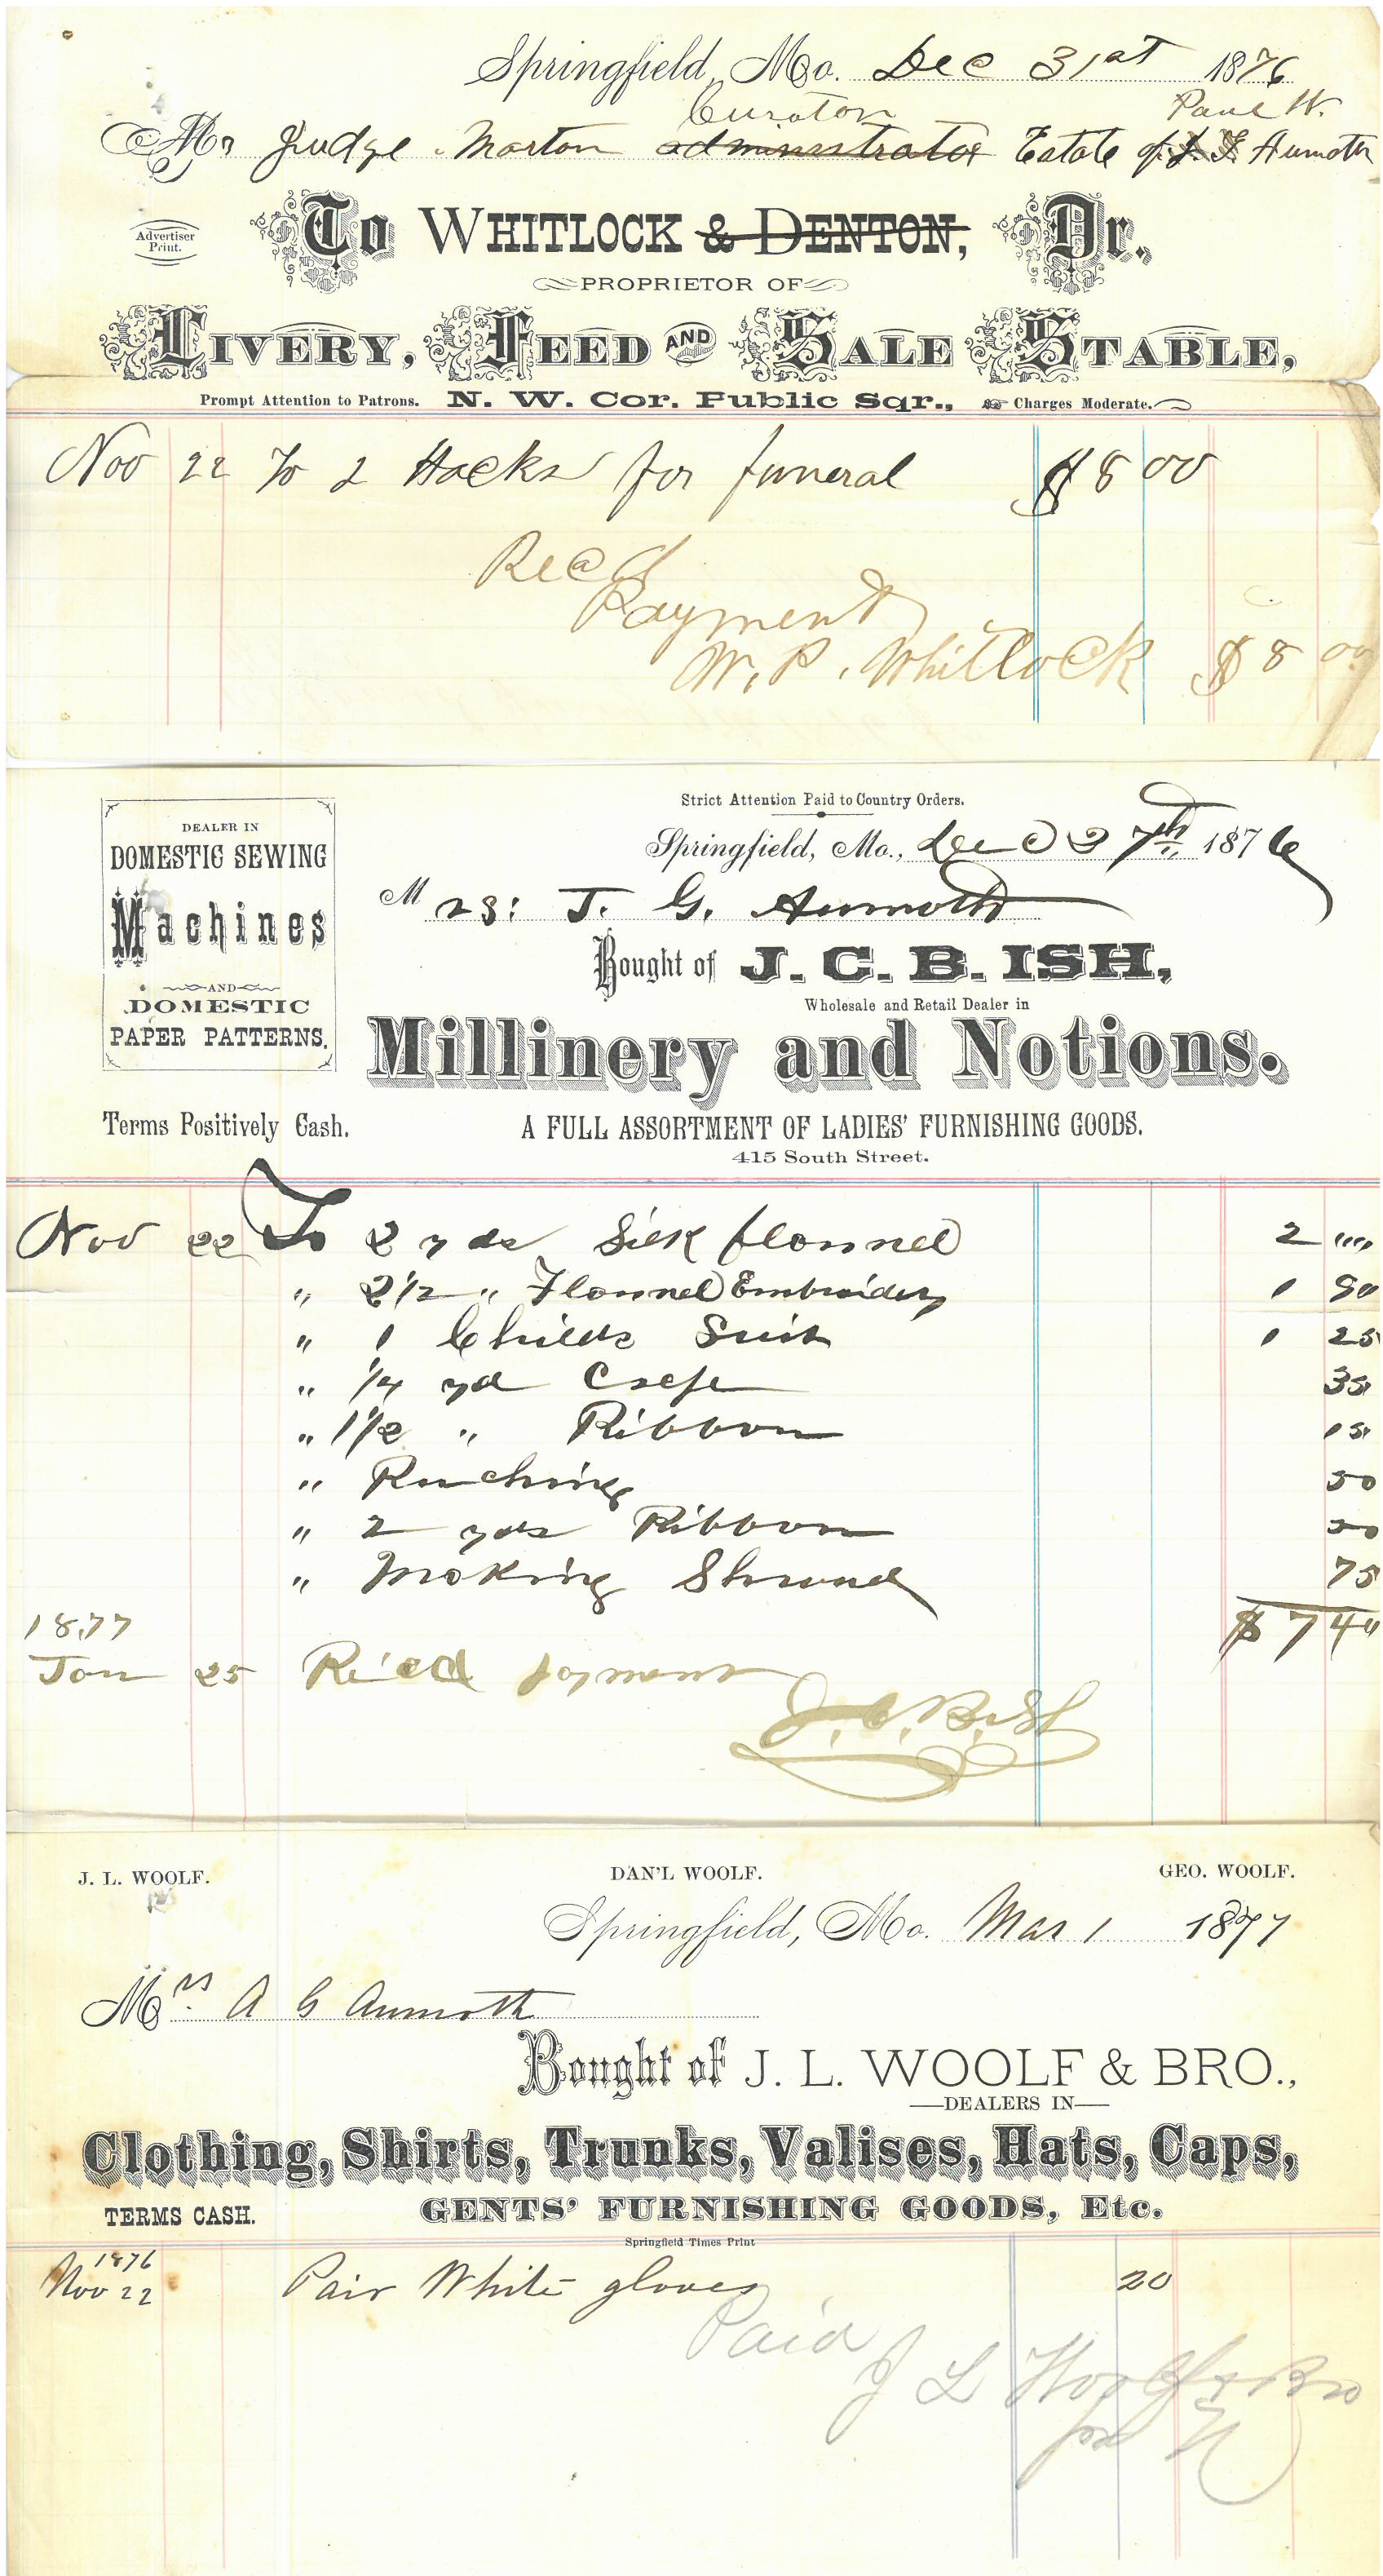 Springfield, Mo. Dec 31st 1876
Curator Paul W.
Mr Judge Morton administrator Estate of J. G. Aumoth
Advertiser Print.
To WHITLOCK & DENTON, Dr.,
PROPRIETOR OF
LIVERY, FEED AND SALE STABLE,
Prompt Attention to Patrons. N. W. Cor. Public Sqr., Charges Moderate.
Nov 22 To 2 Hacks for funeral $8 00
Recd
Payment
W. P. Whitlock $8 00
Strict Attention Paid to Country Orders.
DEALER IN
DOMESTIC SEWING
Machines
AND
DOMESTIC
PAPER PATTERNS.
Springfield, Mo., Dec 27th 1876
M rs: J. G. Aumoth
Bought of J. C. B. ISH,
Wholesale and Retail Dealer in
Millinery and Notions.
Terms Positively Cash.
A FULL ASSORTMENT OF LADIES' FURNISHING GOODS.
415 South Street.
Nov 22 To 2 yds Silk flannel 2 00
" 2 1/2 " Flannel Embroidery 1 90
" 1 Childs Suit 1 25
" 1/4 yd Crepe 35
" 1 1/2 " Ribbon 15
" Ruching 50
" 2 yds Ribbon 50
" Making Shroud 75
$ 7 40
1877
Jan 25 Rec'd payment
J. C. B. Ish
J. L. WOOLF. DAN'L WOOLF. GEO. WOOLF.
Springfield, Mo. Mar 1 1877
Mrs. A G Aumoth
Bought of J. L. WOOLF & BRO.,
DEALERS IN
Clothing, Shirts, Trunks, Valises, Hats, Caps,
TERMS CASH. GENTS' FURNISHING GOODS, Etc.
Springfield Times Print
1876
Nov 22 Pair White gloves 20
Paid
J L Woolf & Bro